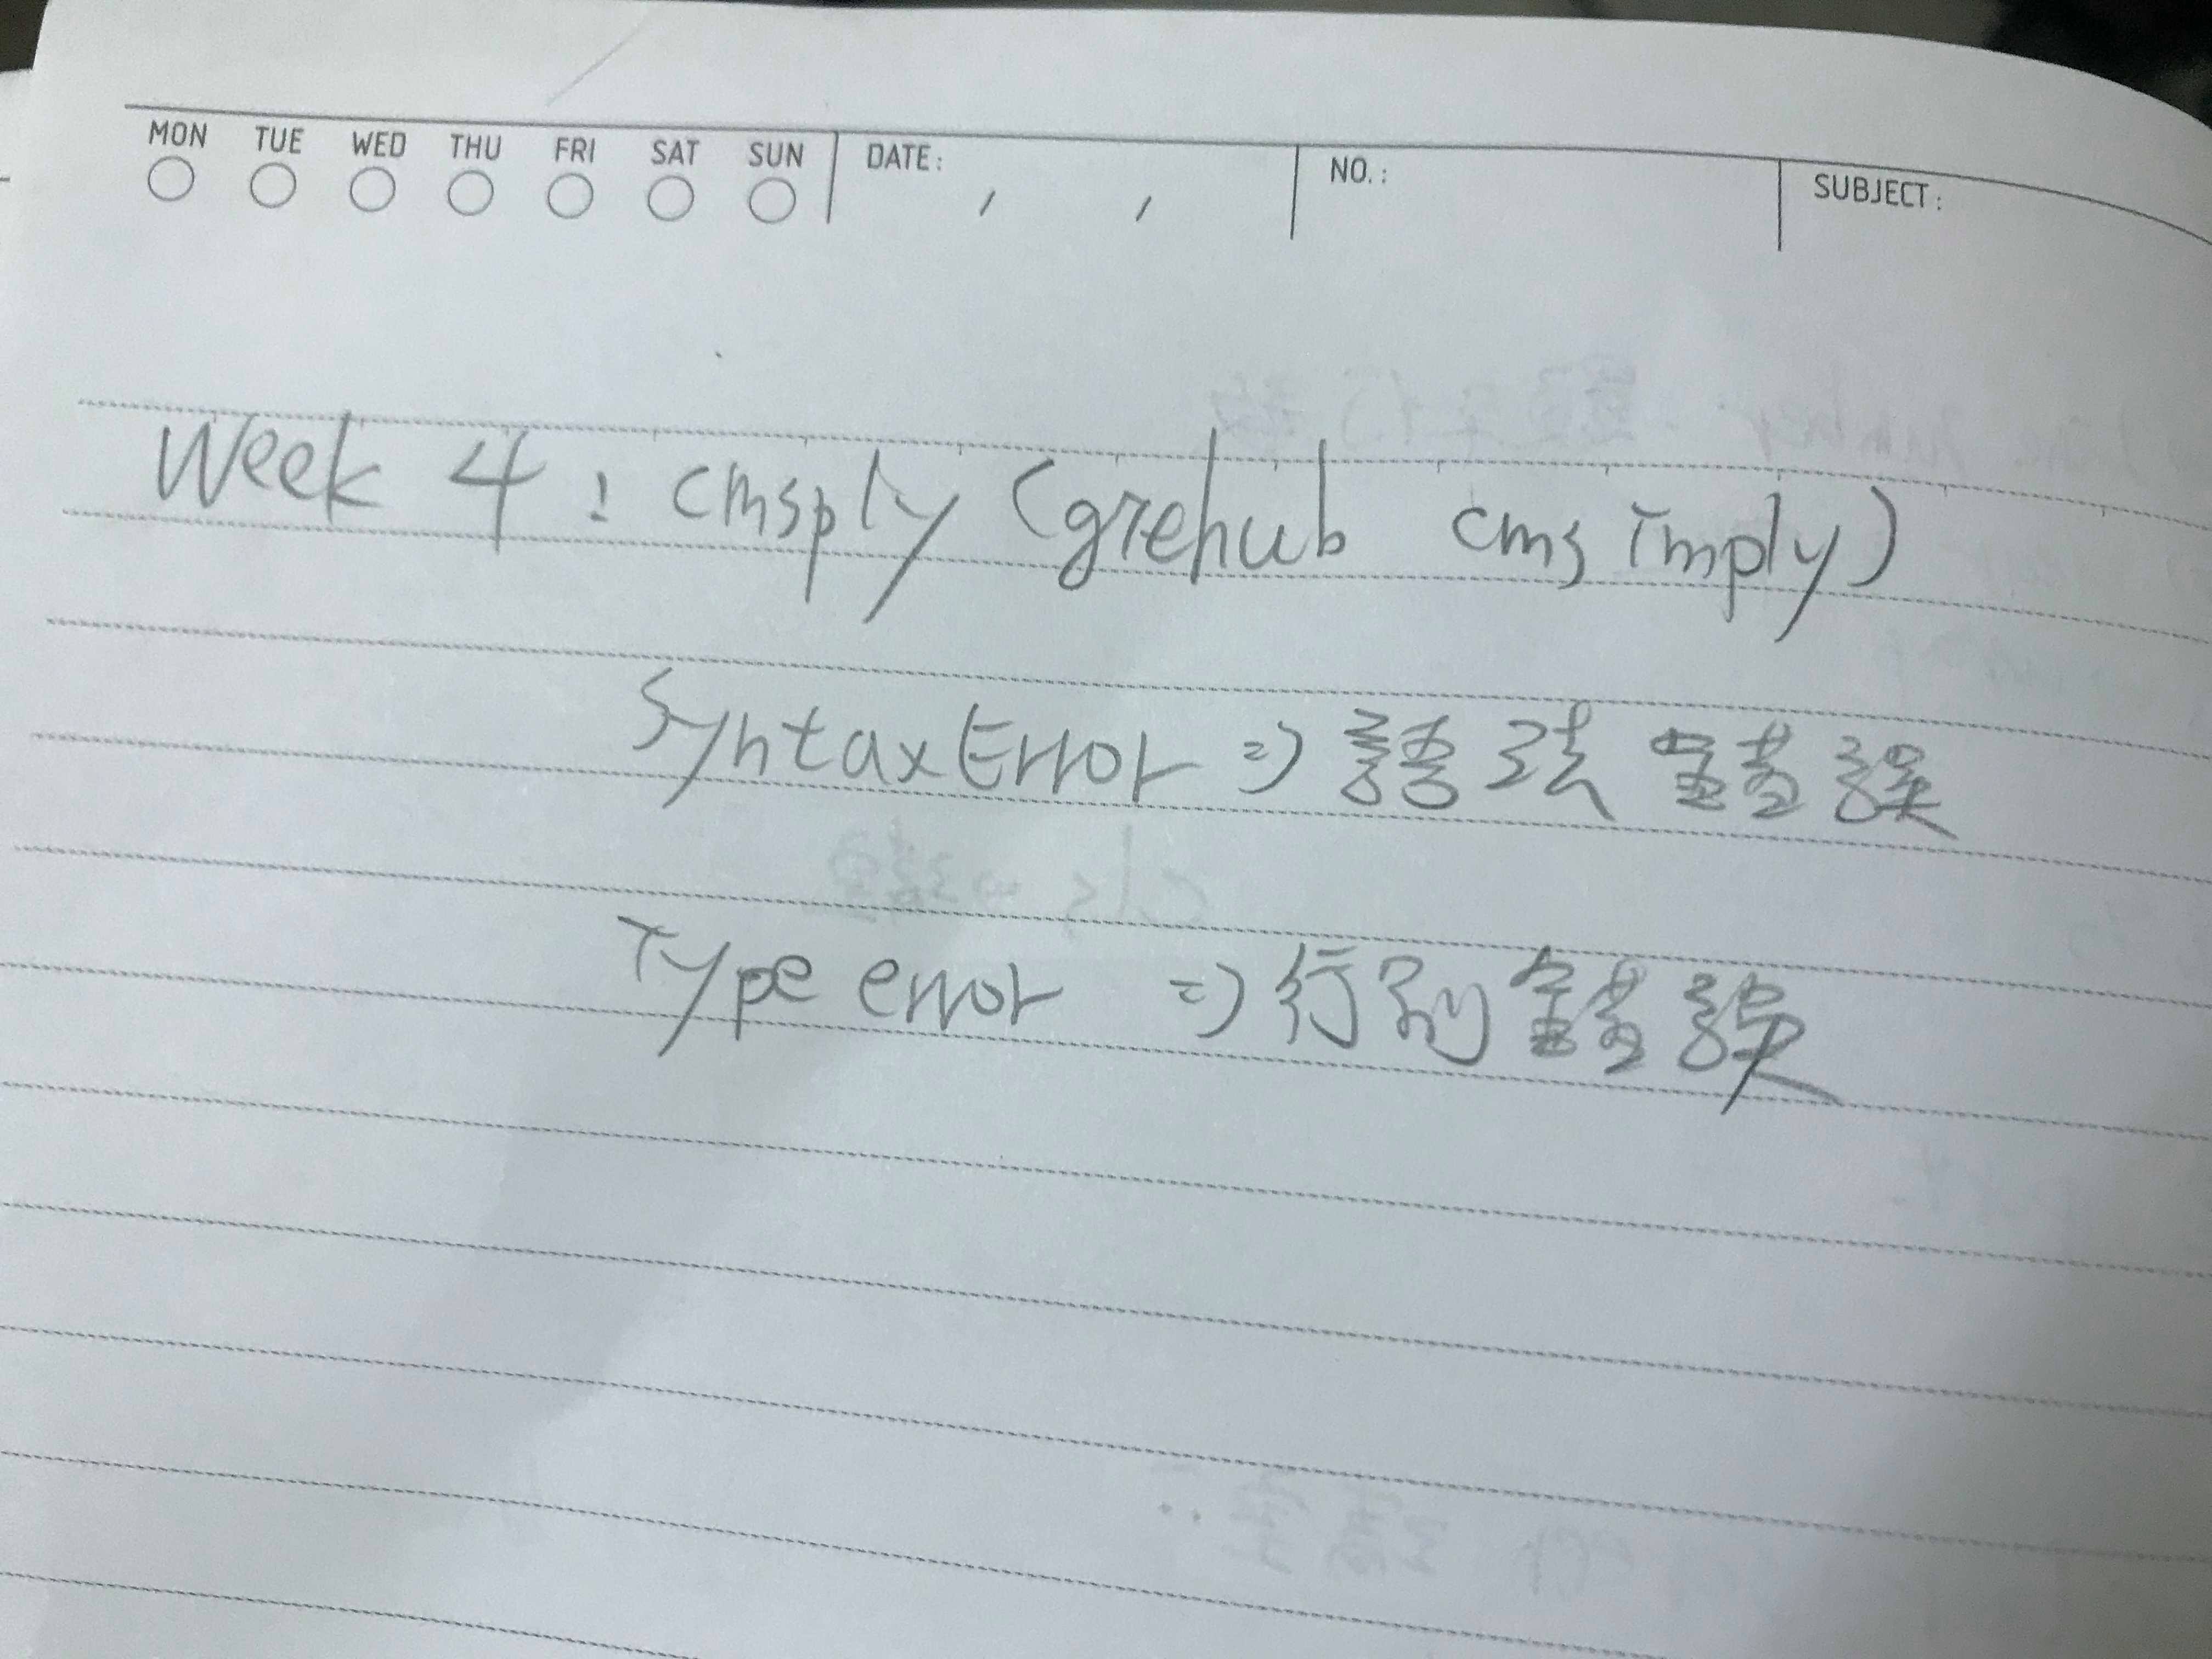 MON TUE WED THU FRI SAT SUN DATE: / / NO.: SUBJECT:
Week 4: cmsply (grehub cmsimply)
SyntaxError => 語法錯誤
Type error => 行別錯誤